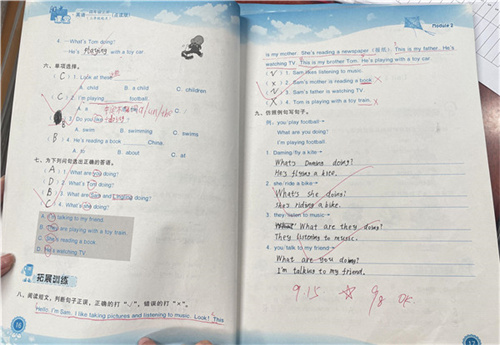 课堂
英语
4. —What's Tom doing?
—He's playing with a toy car.
六、单项选择。
( C ) 1. Look at these
A. child B. a child C. children
( C ) 2. I'm playing football.
A. a
( B ) 3. Do you
A. swim B. swimming C. swims
( B ) 4. He's reading a book China.
A. to B. about C. at
七、为下列问句选出正确的答语。
( A ) 1. What are you doing?
( D ) 2. What's Tom doing?
( B ) 3. What are Sam and Lingling doing?
( C ) 4. What's she doing?
A. I'm talking to my friend.
B. They are playing with a toy train.
C. She's reading a book.
D. He's watching TV.
拓展训练
八、阅读短文，判断句子正误，正确的打“√”，错误的打“×”。
Hello, I'm Sam. I like taking pictures and listening to music. Look! This
16
Module 2
is my mother. She's reading a newspaper (报纸). This is my father. He's
watching TV. This is my brother Tom. He's playing with a toy car.
( √ ) 1. Sam likes listening to music.
( × ) 2. Sam's mother is reading a book. ×
( √ ) 3. Sam's father is watching TV.
( × ) 4. Tom is playing with a toy train. ×
九、仿照例句写句子。
例: you/play football→
What are you doing?
I'm playing football.
1. Daming/fly a kite→
What's Daming doing?
He's flying a kite.
2. she/ride a bike→
What's she doing?
She's riding a bike.
3. they/listen to music→
What are they doing?
They listening to music.
4. you/talk to my friend→
What are you doing?
I'm talking to my friend.
9.15 ☆ 98 OK
17